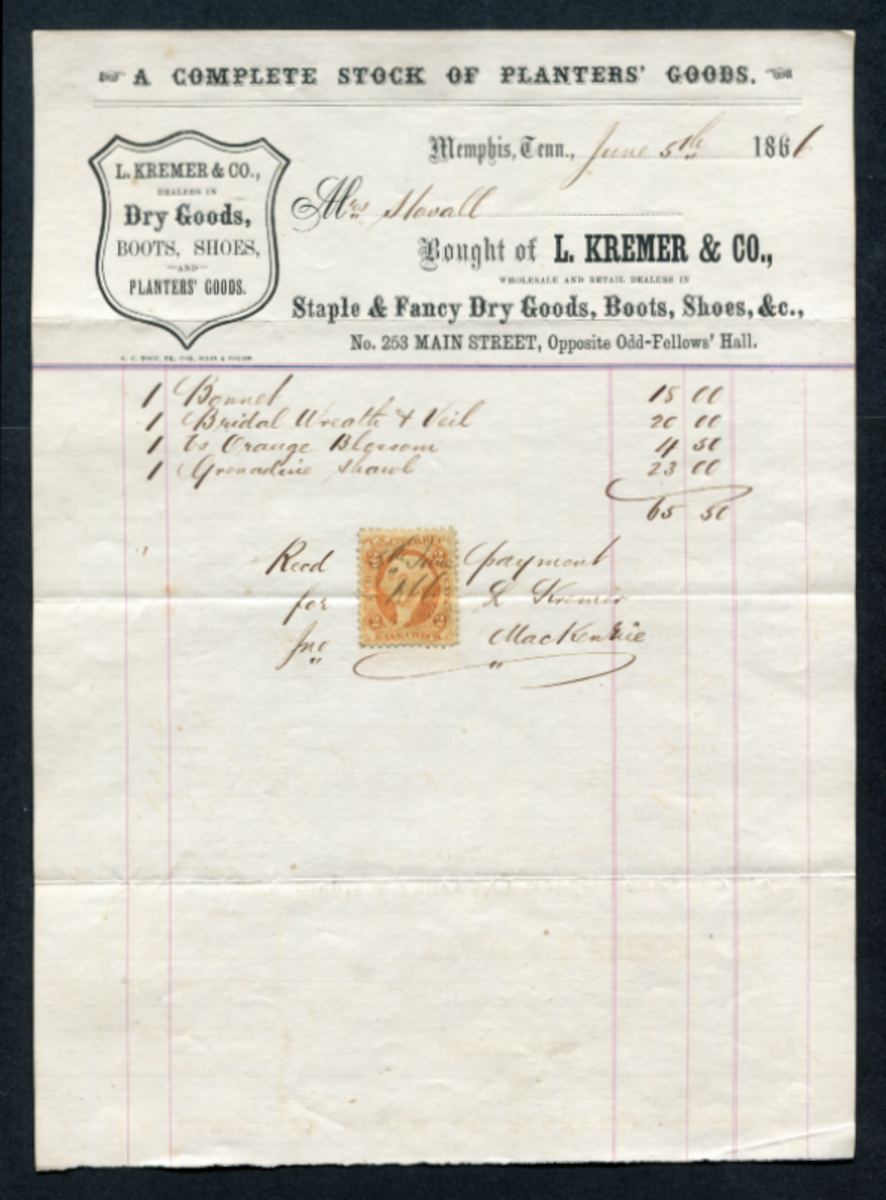 A COMPLETE STOCK OF PLANTERS' GOODS.
L. KREMER & CO.,
DEALERS IN
Dry Goods,
BOOTS, SHOES,
AND
PLANTERS' GOODS.
S. C. TOOF, PR. COR. MAIN & COURT
Memphis, Tenn., June 5th 1866
Mrs Stovall
Bought of L. KREMER & CO.,
WHOLESALE AND RETAIL DEALERS IN
Staple & Fancy Dry Goods, Boots, Shoes, &c.,
No. 253 MAIN STREET, Opposite Odd-Fellows' Hall.
1 Bonnet 18 00
1 Bridal Wreath & Veil 20 00
1 Orange Blossom 4 50
1 Grenadine Shawl 23 00
65 50
Recd payment
for L Kremer
Jno MacKenzie
5th June
2 2
BANK CHECK